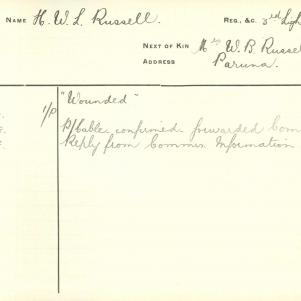 NAME H. W. L. Russell.
REG. &C. 3rd Ligh
NEXT OF KIN Mrs W. B. Russel
ADDRESS Paruna.
1/P "Wounded"
P/Cable confirmed forwarded Com
Reply from Commn Information